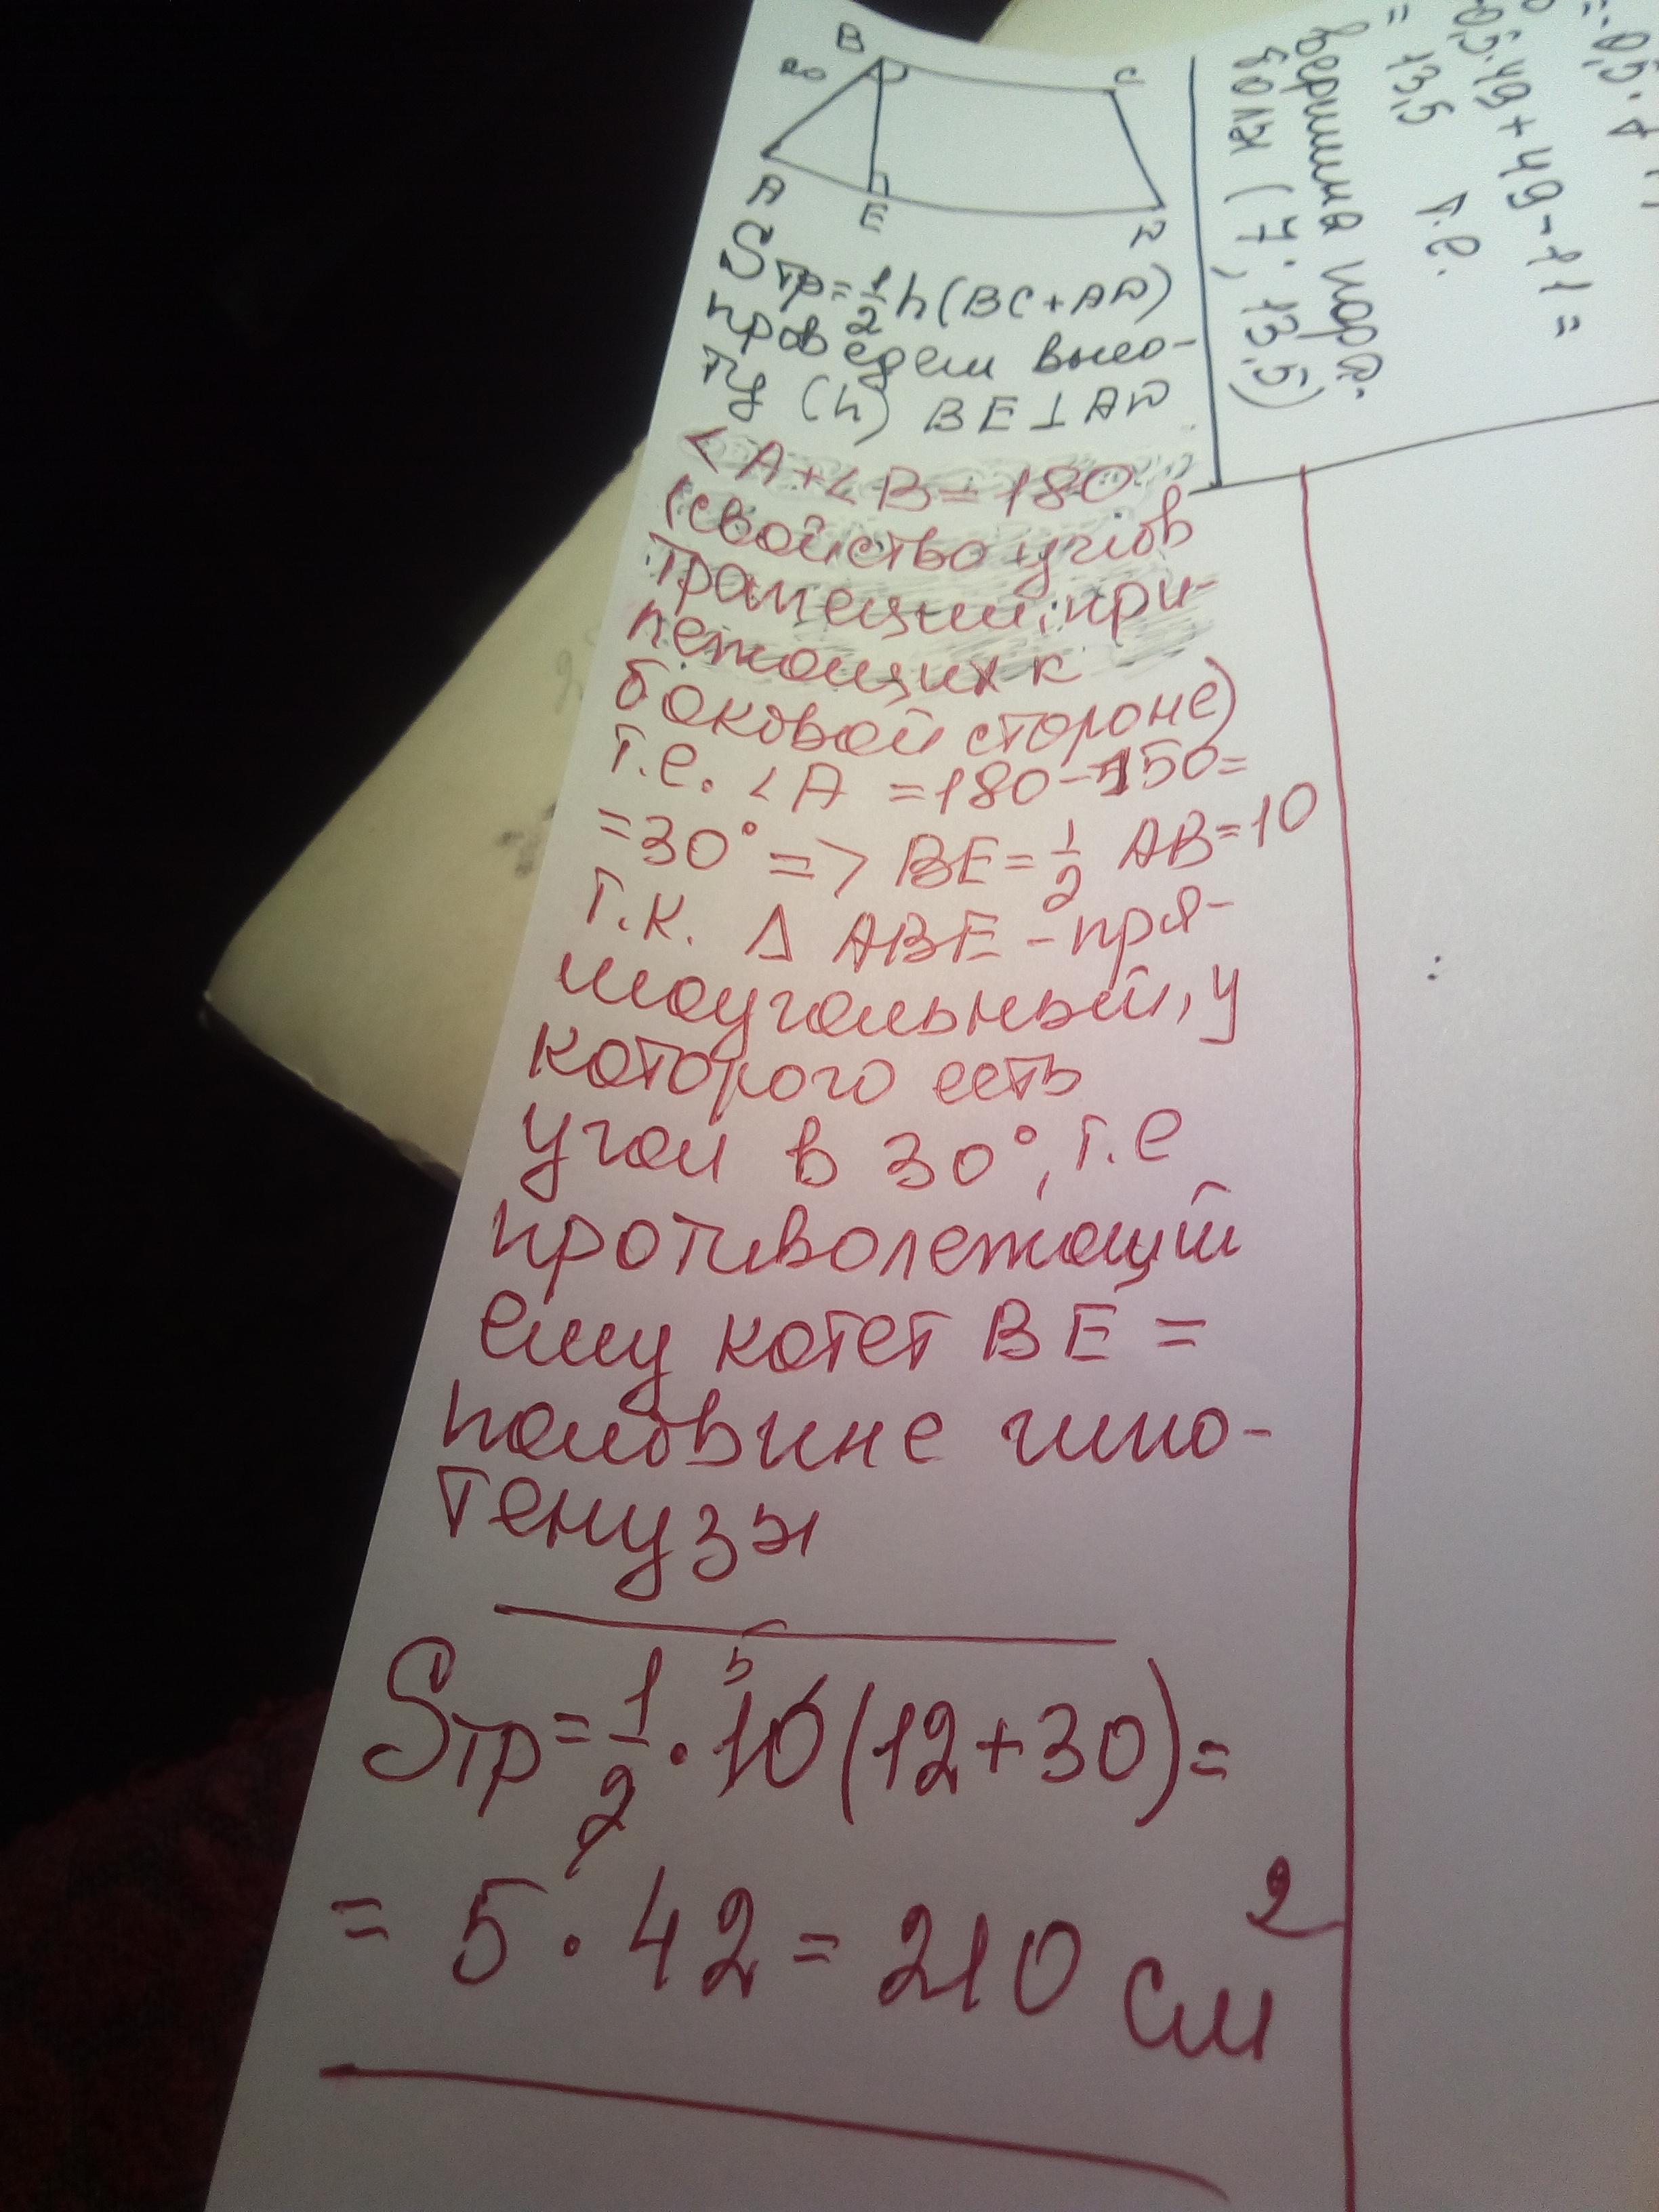 B
C
20
A
E
D
Sтр=1/2h(BC+AD)
проведем высо-
ту (h) BE⊥AD
<A+<B=180
(свойство углов
трапеции, при-
лежащих к
боковой стороне)
т.е. <A =180-150=
=30°=> BE=1/2 AB=10
т.к. Δ ABE-пря-
моугольный, у
которого есть
угол в 30°, т.е
противолежащий
ему катет BE =
половине гипо-
тенузы
5
Sтр=1/2·10(12+30)=
= 5·42=210 см²
=-0,5·7
-0,5·49+49-11=
= 13,5 т.е.
вершина пара-
болы (7; 13,5)